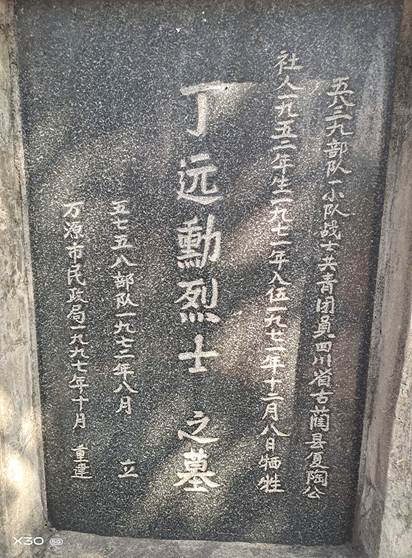 五八三九部队一小队战士共青团员四川省古蔺县复陶公
社人一九五二年生一九七一年入伍一九七二年十二月八日牺牲
丁远勳烈士之墓
五七五八部队一九七二年八月 立
万源市民政局一九九七年十月 重建
X30